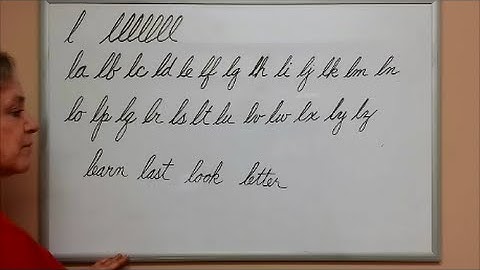 l lllllll
la lb lc ld le lf lg lh li lj lk lm ln
lo lp lq lr ls lt lu lv lw lx ly lz
learn last look letter